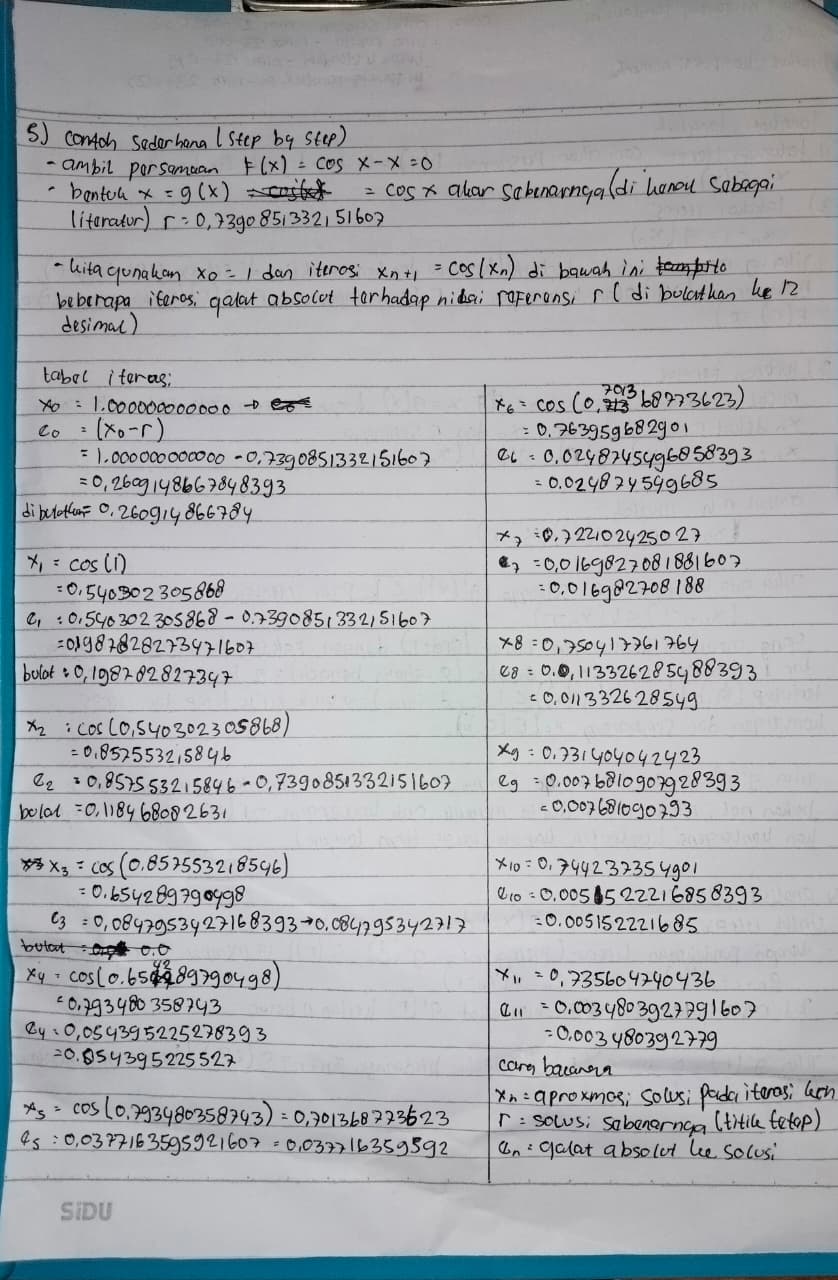 5) contoh sederhana (step by step)
- ambil persamaan F(x) = cos x - x = 0
- bentuk x = g(x) = cos x akar sebenarnya (di kenal sebagai
literatur) r = 0,7390851332151607
- kita gunakan x0 = 1 dan iterasi xn+1 = cos(xn) di bawah ini
beberapa iterasi galat absolut terhadap nilai referensi r (di bulatkan ke 12
desimal)
tabel iterasi;
x0 = 1.000000000000 →
e0 = (x0-r)
= 1.000000000000 - 0,7390851332151607
= 0,2609148667848393
dibulatkan = 0,260914866784
x1 = cos(1)
= 0,540302305868
e1 : 0,540302305868 - 0.7390851332151607
= 0.1987828273471607
bulat : 0,198782827347
x2 : cos(0,540302305868)
= 0,857553215846
e2 = 0,857553215846 - 0,7390851332151607
bulat = 0,118468082631
x3 = cos(0.857553218546)
= 0.654289790498
e3 = 0,0847953427168393 → 0.084795342717
x4 = cos(0.654289790498)
= 0.793480358743
e4 : 0,054395225278393
= 0.054395225527
x5 = cos(0,793480358743) = 0,701368773623
e5 : 0,0377163595921607 = 0.037716359592
x6 = cos(0,701368773623)
= 0.763959682901
e6 = 0,0248745496858393
= 0.024874549685
x7 = 0,722102425027
e7 = 0,0169827081881607
= 0,016982708188
x8 = 0,750417761764
e8 = 0.0,113326285488393
= 0.011332628549
x9 = 0.731404042423
e9 = 0.0076810907928393
= 0,007681090793
x10 = 0,744237354901
e10 = 0.0051522216858393
= 0.005152221685
x11 = 0,735604740436
e11 = 0.0034803927791607
= 0,003480392779
cara bacanya
xn = aproxmasi solusi pada iterasi ken
r = solusi sebenarnya (titik tetap)
en = galat absolut ke solusi
SiDU